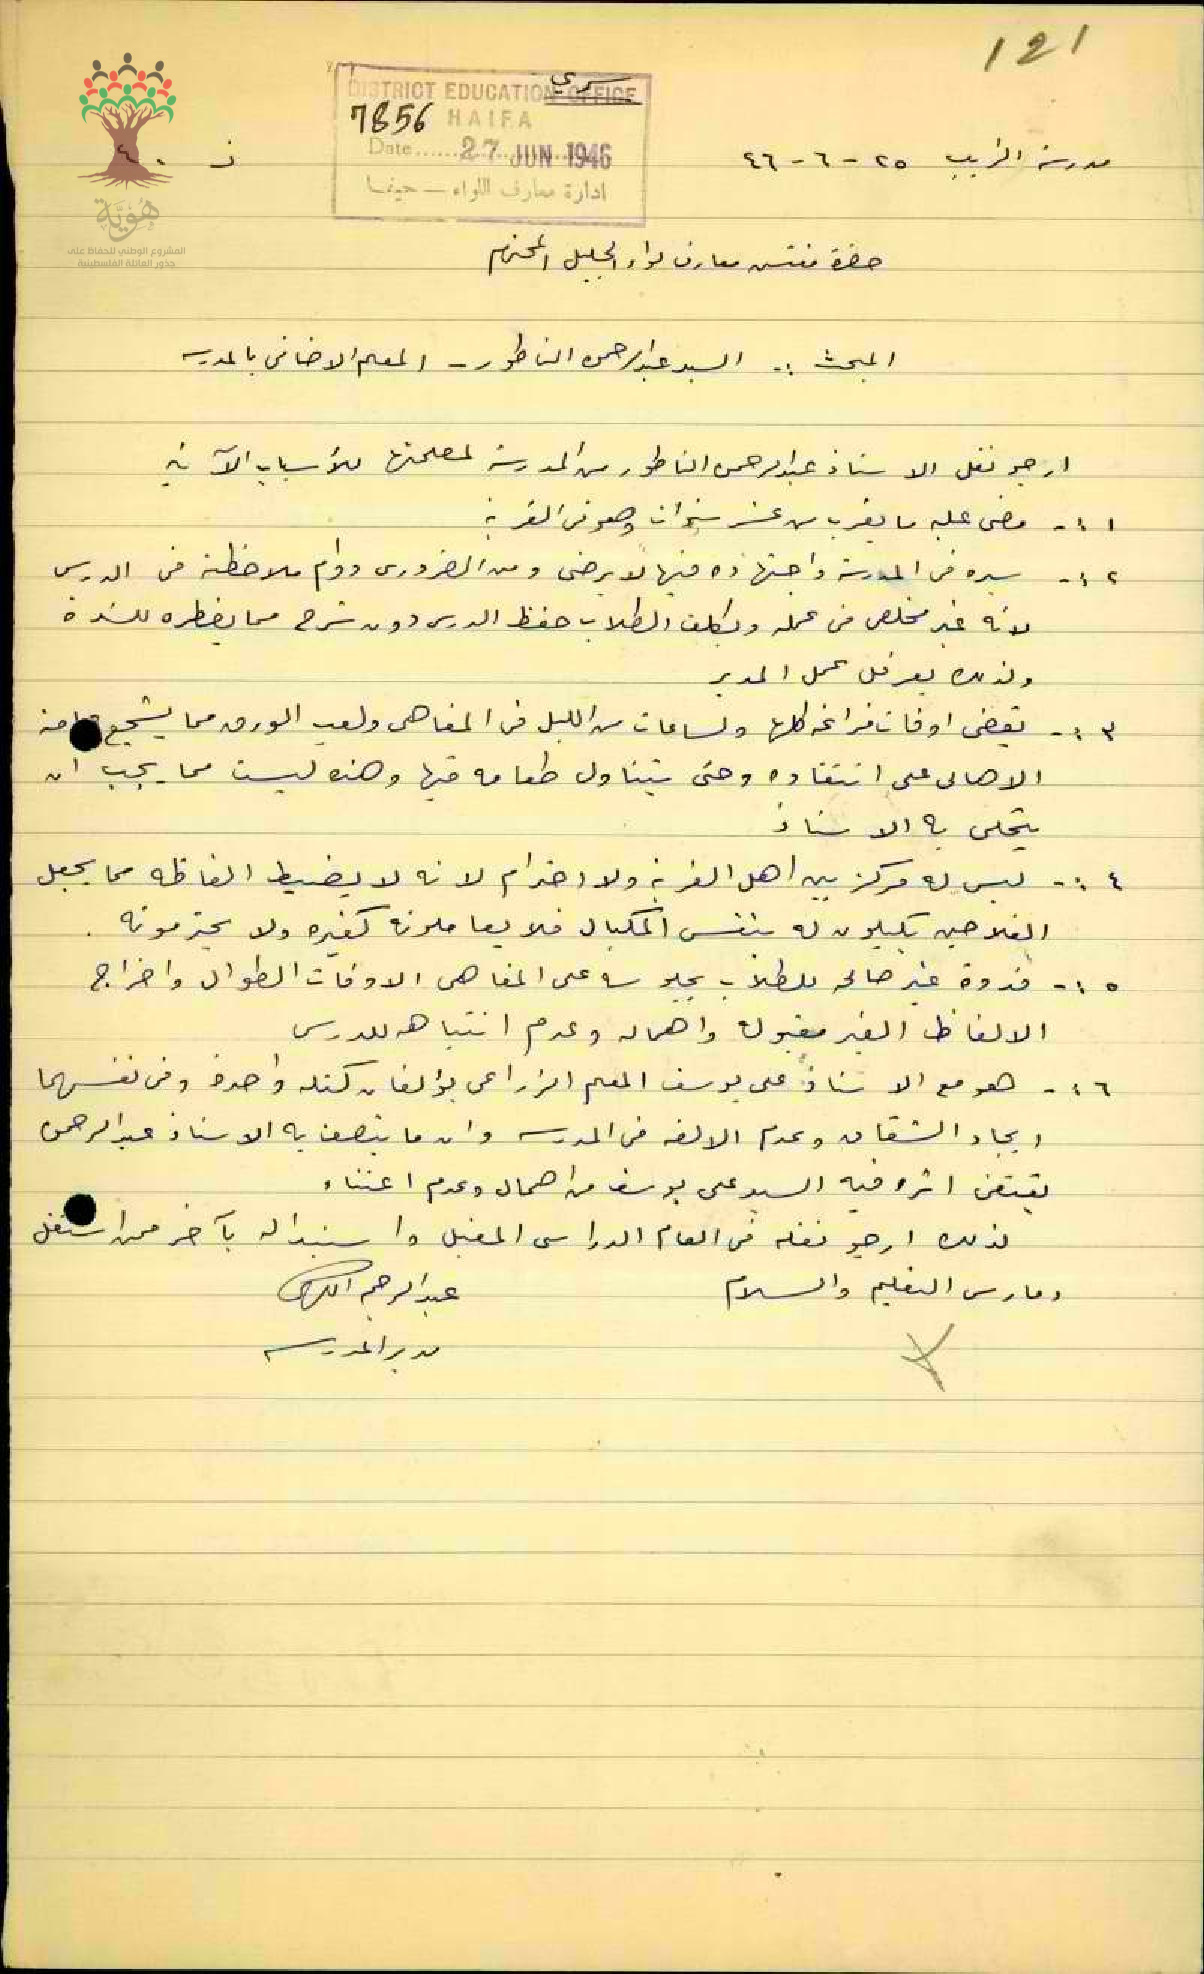 121
سري
DISTRICT EDUCATION OFFICE
7856 HAIFA
Date ...... 27 JUN 1946
ادارة معارف اللواء – حيفا
مدرسة الزيب ٢٥ - ٦ - ٤٦
هُوِيَّة
المشروع الوطني للحفاظ على
جذور العائلة الفلسطينية
حضرة مفتش معارف لواء الجليل المحترم
المبحث :. السيد عبد الرحمن الناطور - المعلم الاضافي بالمدرسه
ارجو نقل الاستاذ عبد الرحمن الناطور من المدرسة لمصلحتها للأسباب الآتية
١ :- مضى عليه ما يقرب من عشر سنوات وهو في القرية
٢ :- سيره في المدرسة واجتهاده فيها لا يرضى ومن الضروري دوام ملاحظته في الدرس
لانه غير مخلص في عمله ويكلف الطلاب حفظ الدرس دون شرح مما يضطره للشدة
وبذلك يعرقل عمل المدير
٣ :- يقضي اوقات فراغه كلها ولساعات من الليل في المقاهي ولعب الورق مما يشجع
الاهالي على انتقاده وحتى يتناول طعامه فيها وهذه ليست مما يجب ان
يتحلى به الاستاذ
٤ :- ليس له مركز بين اهل القرية ولا احترام لانه لا يضبط الفاظه مما يجعل
الفلاحين يكيلون له بنفس المكيال فلا يعاملونه كغيره ولا يحترمونه .
٥ :- قدوة غير صالحه للطلاب بجلوسه على المقاهي الاوقات الطوال واخراج
الالفاظ الغير مقبوله واهماله وعدم انتباهه للدرس
٦ :- هو مع الاستاذ علي يوسف المعلم الزراعي يؤلفان كتله واحدة وفي نفسهما
ايجاد الشقاق وعدم الالفه في المدرسه وان ما يتصف به الاستاذ عبد الرحمن
يقتفي اثره فيه السيد علي يوسف من اهمال وعدم اعتناء
لذلك ارجو نقله في العام الدراسي المقبل واستبداله بآخر ممن اشتغل
ومارس التعليم والسلام
عبد الرحيم
مدير المدرسه